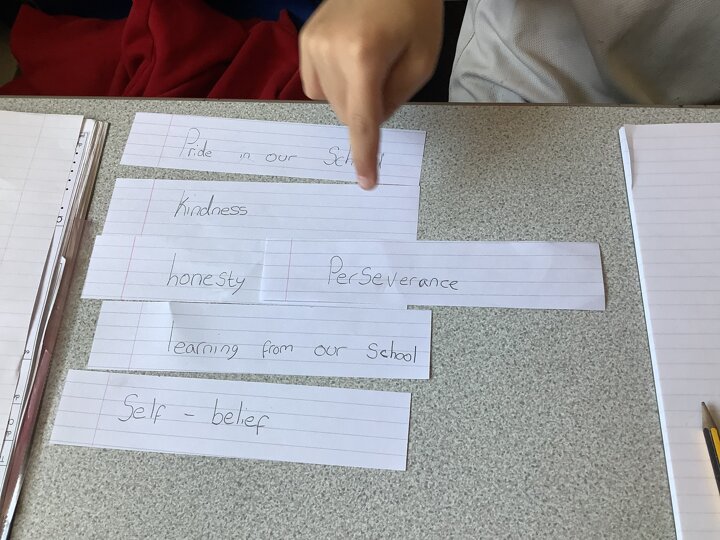 Pride in our School
kindness
honesty
Perseverance
learning from our School
Self - belief